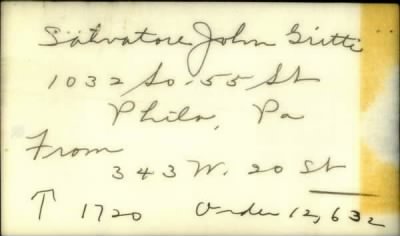 Salvatore John Gritti
1032 So. 55 St
Phila, Pa
From
343 W. 20 St
T 1720 Order 12,632